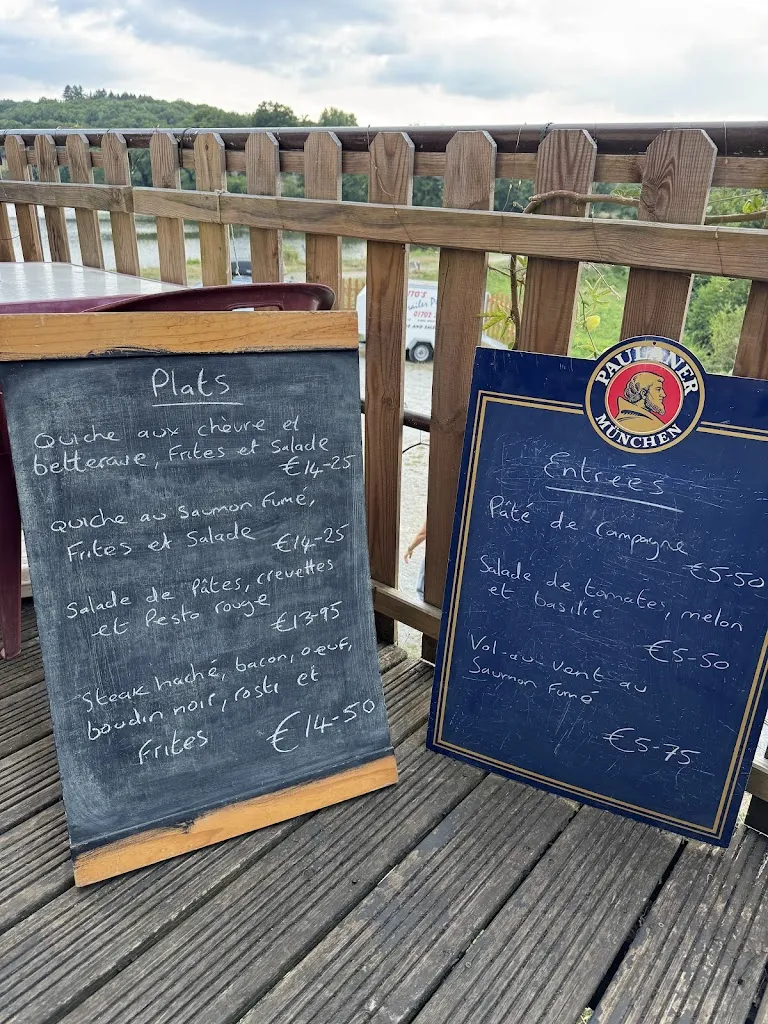 Plats
Quiche aux chèvre et
betterave, Frites et Salade
€14-25
Quiche au Saumon Fumé,
Frites et Salade
€14-25
Salade de Pâtes, crevettes
et Pesto rouge
€13-95
Steak haché, bacon, oeuf,
boudin noir, rosti et
Frites
€14-50
PAULANER
MÜNCHEN
Entrées
Pâté de Campagne
€5-50
Salade de tomates, melon
et basilic
€5-50
Vol-au-vent au
Saumon Fumé
€5-75